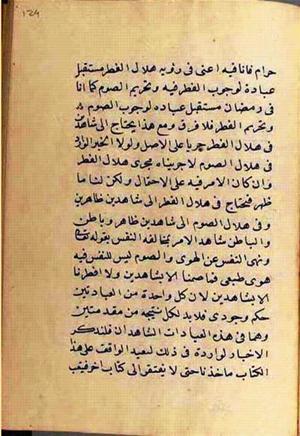 ١٢٤
حرام فانا فيه اعنى فى رؤية هلال الفطر مستقبل
عبادة لوجوب الفطر فيه وتحريم الصوم كما انا
فى رمضان مستقبل عباده لوجوب الصوم فيه
وتحريم الفطر فلا فرق ومع هذا يحتاج الى شاهدين
فى هلال الفطر جريا على الاصل ولولا الخبر الوارد
فى هلال الصوم لاجريناه مجرى هلال الفطر
وان كان الامر فيه على الاحتمال ولكن لنا ما
ظهر فنحتاج فى هلال الفطر الى شاهدين ظاهرين
وفى هلال الصوم الى شاهدين ظاهر وباطن
والباطن شاهد الامر بمخالفة النفس بقوله تعالى
ونهى النفس عن الهوى والصوم ليس للنفس فيه
هوى طبيعى فما صمنا الا بشاهدين ولا افطرنا
الا بشاهدين لان كل واحدة من العبادتين
حكم وجودى فلا بد لكل نتيجه من مقدمتين
وهما فى هذه العبادات الشاهدان فلنذكر
الاخبار الواردة فى ذلك ليعيد الواقف على هذا
الكتاب ماخذنا حتى لا يفتقر الى كتاب اخر فيتعب